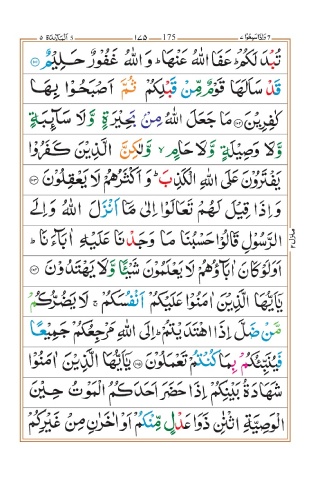 واذا سمعوا ۷ ١٧٥ 175 المآئدة ۵
تُبْدَ لَكُمْ ؕ عَفَا اللّٰهُ عَنْهَا ؕ وَ اللّٰهُ غَفُوْرٌ حَلِيْمٌ ﴿۱۰۱﴾
قَدْ سَاَلَهَا قَوْمٌ مِّنْ قَبْلِكُمْ ثُمَّ اَصْبَحُوْا بِهَا
كٰفِرِيْنَ ﴿۱۰۲﴾ مَا جَعَلَ اللّٰهُ مِنْۢ بَحِيْرَةٍ وَّلَا سَآئِبَةٍ
وَّلَا وَصِيْلَةٍ وَّلَا حَامٍ ۙ وَّلٰكِنَّ الَّذِيْنَ كَفَرُوْا
يَفْتَرُوْنَ عَلَى اللّٰهِ الْكَذِبَ ؕ وَ اَكْثَرُهُمْ لَا يَعْقِلُوْنَ ﴿۱۰۳﴾
وَ اِذَا قِيْلَ لَهُمْ تَعَالَوْا اِلٰى مَاۤ اَنْزَلَ اللّٰهُ وَ اِلَى
الرَّسُوْلِ قَالُوْا حَسْبُنَا مَا وَجَدْنَا عَلَيْهِ اٰبَآءَنَا ؕ
اَوَلَوْ كَانَ اٰبَآؤُهُمْ لَا يَعْلَمُوْنَ شَيْـًٔا وَّلَا يَهْتَدُوْنَ ﴿۱۰۴﴾
يٰۤاَيُّهَا الَّذِيْنَ اٰمَنُوْا عَلَيْكُمْ اَنْفُسَكُمْ ۚ لَا يَضُرُّكُمْ
مَّنْ ضَلَّ اِذَا اهْتَدَيْتُمْ ؕ اِلَى اللّٰهِ مَرْجِعُكُمْ جَمِيْعًا
فَيُنَبِّئُكُمْ بِمَا كُنْتُمْ تَعْمَلُوْنَ ﴿۱۰۵﴾ يٰۤاَيُّهَا الَّذِيْنَ اٰمَنُوْا
شَهَادَةُ بَيْنِكُمْ اِذَا حَضَرَ اَحَدَكُمُ الْمَوْتُ حِيْنَ
الْوَصِيَّةِ اثْنٰنِ ذَوَا عَدْلٍ مِّنْكُمْ اَوْ اٰخَرٰنِ مِنْ غَيْرِكُمْ
منزل ۲